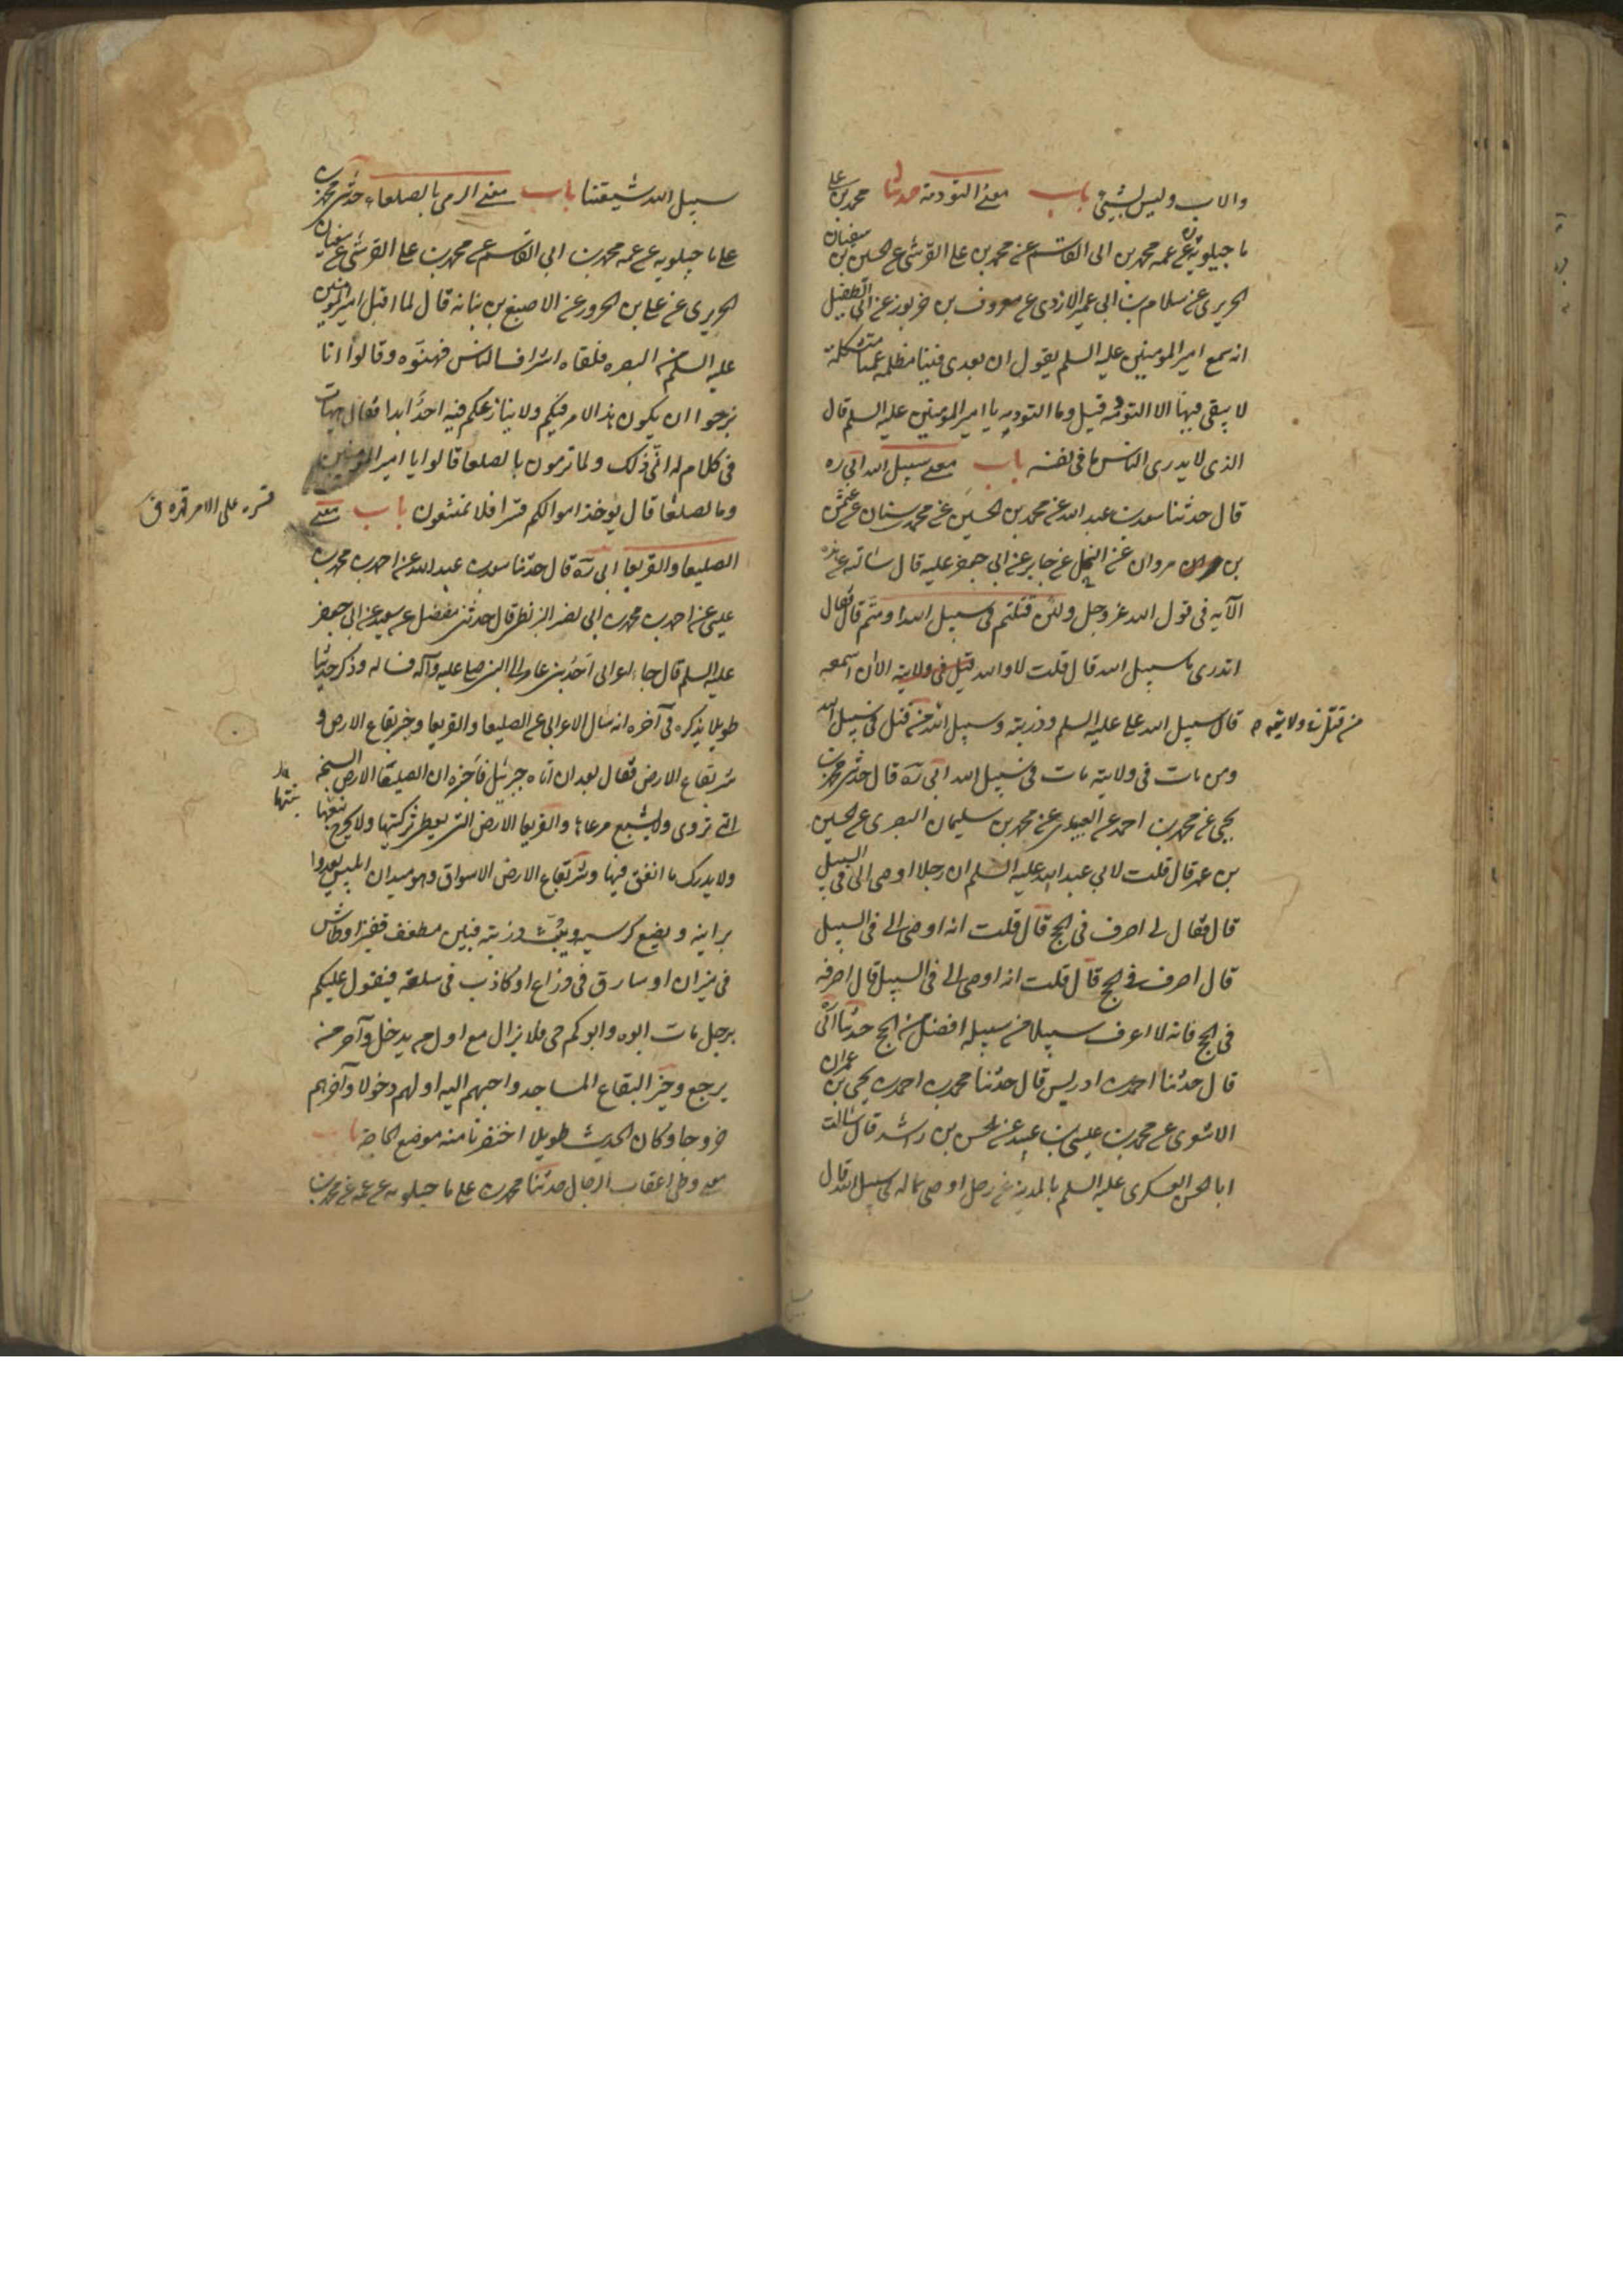 والاب وليس لشيئ باب معنے التودمة حدثنا محمد بن علی
ماجيلويه عن عمه محمد بن ابی القاسم عن محمد بن علی القرشی عن الحسين بن سفيان
الحريری عن سلام بن ابی عمير الازدی عن معروف بن خربوز عن ابی الطفيل
انه سمع امير المومنين عليه السلم يقول ان بعدی فتينا مظلمه عميا متشكلة
لا يبقی فيها الا التومه قيل وما التومه يا امير المومنين عليه السلم قال
الذی لا يدری الناس ما فی نفسه باب معنی سبيل الله ابی ره
قال حدثنا سعد بن عبد الله عن محمد بن الحسين عن محمد بن سنان عن عمار
بن مروان عن المنخل عن جابر عن ابی جعفر عليه قال سالته عن هذه
الآيه فی قول الله عز وجل ولئن قتلتم فی سبيل الله او متم قال فقال
اتدری ما سبيل الله قال قلت لا والله قتل فی ولايته الا ان اسمعه
من قتل فی ولايته
قال سبيل الله علی عليه السلم وذريته وسبيل الله من قتل فی سبيل الله
ومن مات فی ولايته مات فی سبيل الله ابی ره قال حدثنی محمد بن
يحيی عن محمد بن احمد عن العبيدی عن محمد بن سليمان البصری عن الحسين
بن عمر قال قلت لابی عبد الله عليه السلم ان رجلا اوصی الی فی السبيل
قال فقال لی اصرف فی الحج قال قلت انه اوصی الی فی السبيل
قال اصرف فی الحج قال قلت انه اوصی الی فی السبيل قال اصرفه
فی الحج فانه لا اعرف سبيلا من سبيله افضل من الحج حدثنا ابی ره
قال حدثنا احمد بن ادريس قال حدثنا محمد بن احمد بن يحيی بن عمران
الاشعری عن محمد بن عيسی بن عبيد عن الحسن بن راشد قال سالت
ابا الحسن العسكری عليه السلم بالمدينه عن رجل اوصی بماله فی سبيل الله قال
سبيل الله شيعتنا باب معنی الرمی بالصلعاء حدثنی محمد بن
علی ماجيلويه عن عمه محمد بن ابی القاسم عن محمد بن علی القرشی عن سفيان
الحريری عن علی بن الحزور عن الاصبغ بن نباته قال لما اقبل امير المومنين
عليه السلم من البصره فلقاه اشراف الناس فهنوه وقالوا انا
نرجوا ان يكون هذا الامر فيكم ولا ينازعكم فيه احد ابدا فقال هيهات
فی كلام له انی ذلك ولما ترمون بالصلعا قالوا يا امير المومنين
وما لصلعا قال يوخذ اموالكم قسرا فلا تمنعون باب معنی
قسره علی الامر قهره ق
الصليعا والقريعا ابی ره قال حدثنا سعد بن عبد الله عن احمد بن محمد بن
عيسی عن احمد بن محمد بن ابی نصر البزنطی قال حدثنی مفضل عن سعيد عن ابی جعفر
عليه السلم قال جاء اعرابی احد بنی عامر الی النبی صلی عليه وآله فساله وذكر حديثا
طويلا يذكره فی آخره انه سال الاعرابی عن الصليعا والقريعا وخير بقاع الارض و
شر بقاع الارض فقال بعد ان اتاه جبرئيل فاخبره ان الصليعا الارض السبخه
التی تروی ولا يشبع مرعاها والقريعا الارض التی لا يعطی بركتها ولا يخرج نبتها
نبتها
ولا يدرك ما انفق فيها وشر بقاع الارض الاسواق وهو ميدان ابليس يغدوا
برايته ويضع كرسيه ويبث ذريته فبين مطفف قفيز او طائش
فی ميزان او سارق فی ذراع او كاذب فی سلعته فيقول عليكم
برجل مات ابوه وابوكم حی فلا يزال مع اول من يدخل وآخر من
يرجع وخير البقاع المساجد واحبهم اليه اولهم دخولا وآخرهم
خروجا وكان الحديث طويلا اختصرنا منه موضع الحاجة باب
معنی وطی اعقاب الرجال حدثنا محمد بن علی ماجيلويه عن عمه عن محمد بن